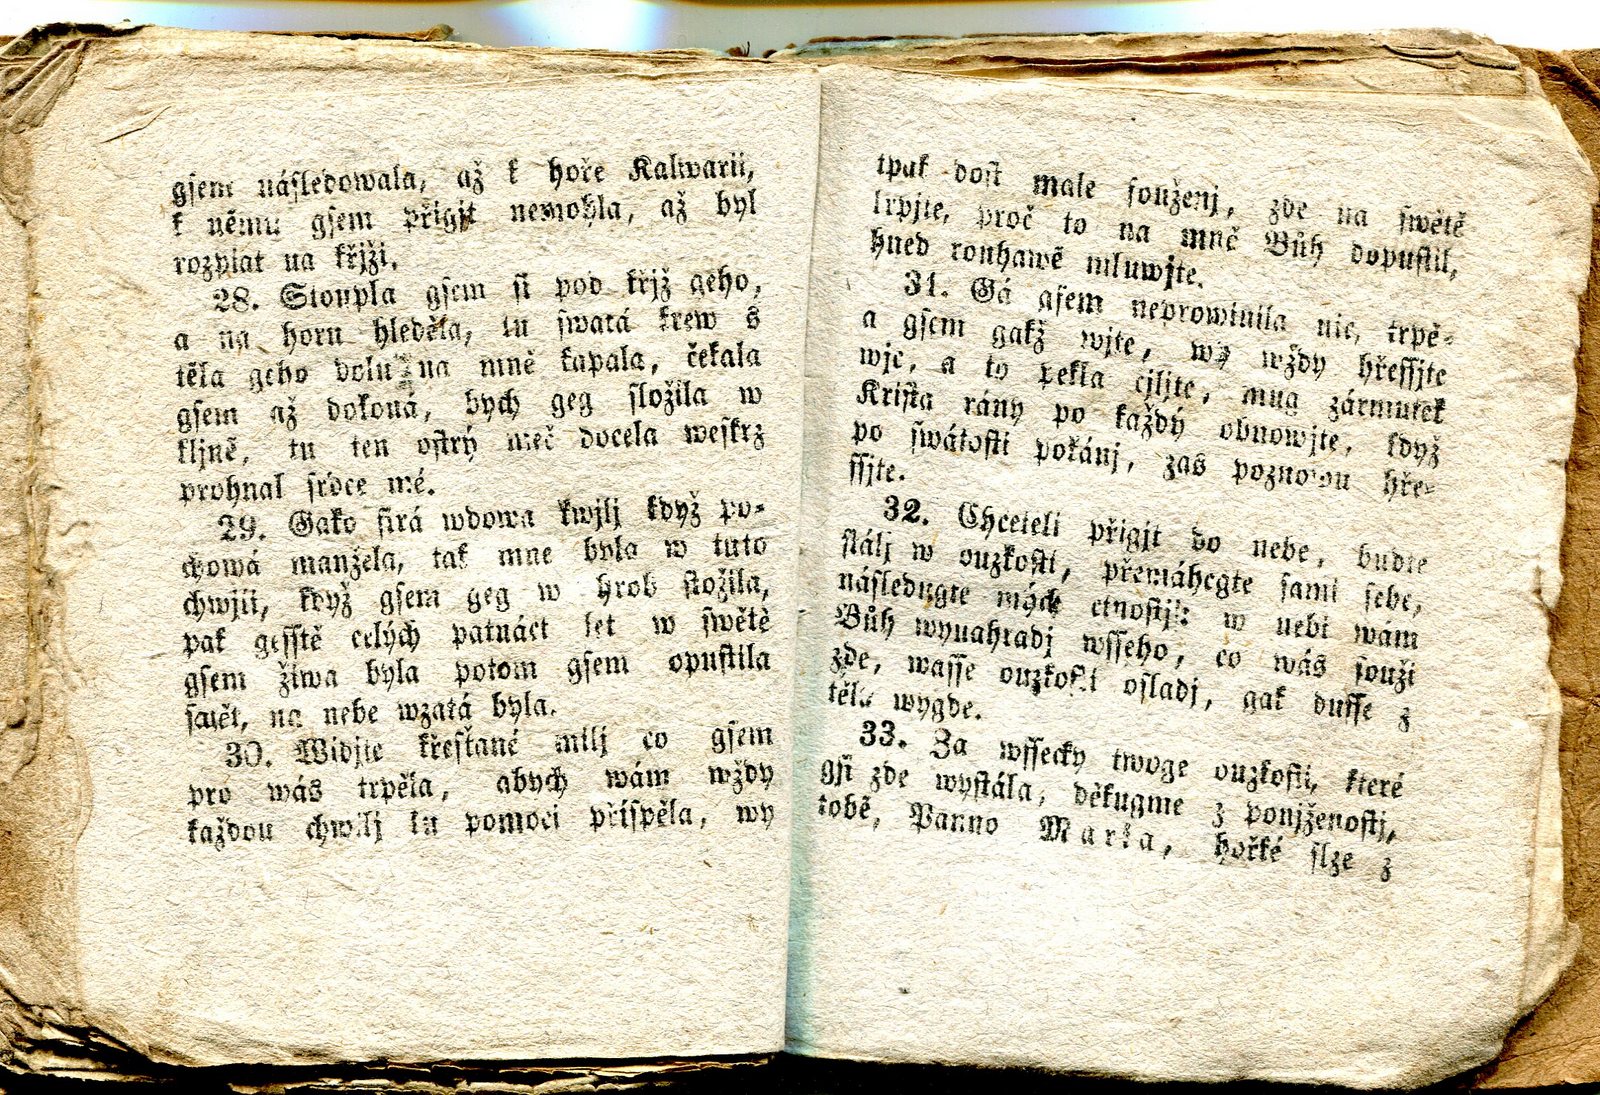 gsem následowala, až k hoře Kalwarii,
k němu gsem přigjt nemohla, až byl
rozpiat na křjži.
28. Stoupla gsem si pod křjž geho,
a na horu hleděla, tu swatá krew s
těla geho dolu na mně kapala, čekala
gsem až dokoná, bych geg složila w
kljně, tu ten ostrý meč docela weskrz
prohnal srdce mé.
29. Gako sirá wdowa kwjlj když po-
chowá manžela, tak mne byla w tuto
chwjli, když gsem geg w hrob složila,
pak gesstě celých patnáct let w swětě
gsem žiwa byla potom gsem opustila
swět, na nebe wzatá byla.
30. Widjte křesťané milj co gsem
pro wás trpěla, abych wám wždy
každou chwilj ku pomoci přispěla, wy
tpak dost male souženj, zde na swětě
trpjte, proč to na mně Bůh dopustil,
hned rouhawě mluwjte.
31. Gá gsem neprowinila nic, trpě-
a gsem gakž wjte, wy wždy hřessjte
wjc, a to pekla cjljte, mug zármutek
Krista rány po každý obnowjte, když
po swátosti pokánj, zas poznowu hře-
ssjte.
32. Chceteli přigjt do nebe, budte
stálj w ouzkosti, přemáhegte sami sebe,
následugte mých ctnostj: w nebi wám
Bůh wynahradj wsseho, co wás souži
zde, wasse ouzkosti osladj, gak dusse z
těla wygde.
33. Za wssecky twoge ouzkosti, které
gsi zde wystála, děkugme z ponjženostj,
tobě, Panno Maria, hořké slze z